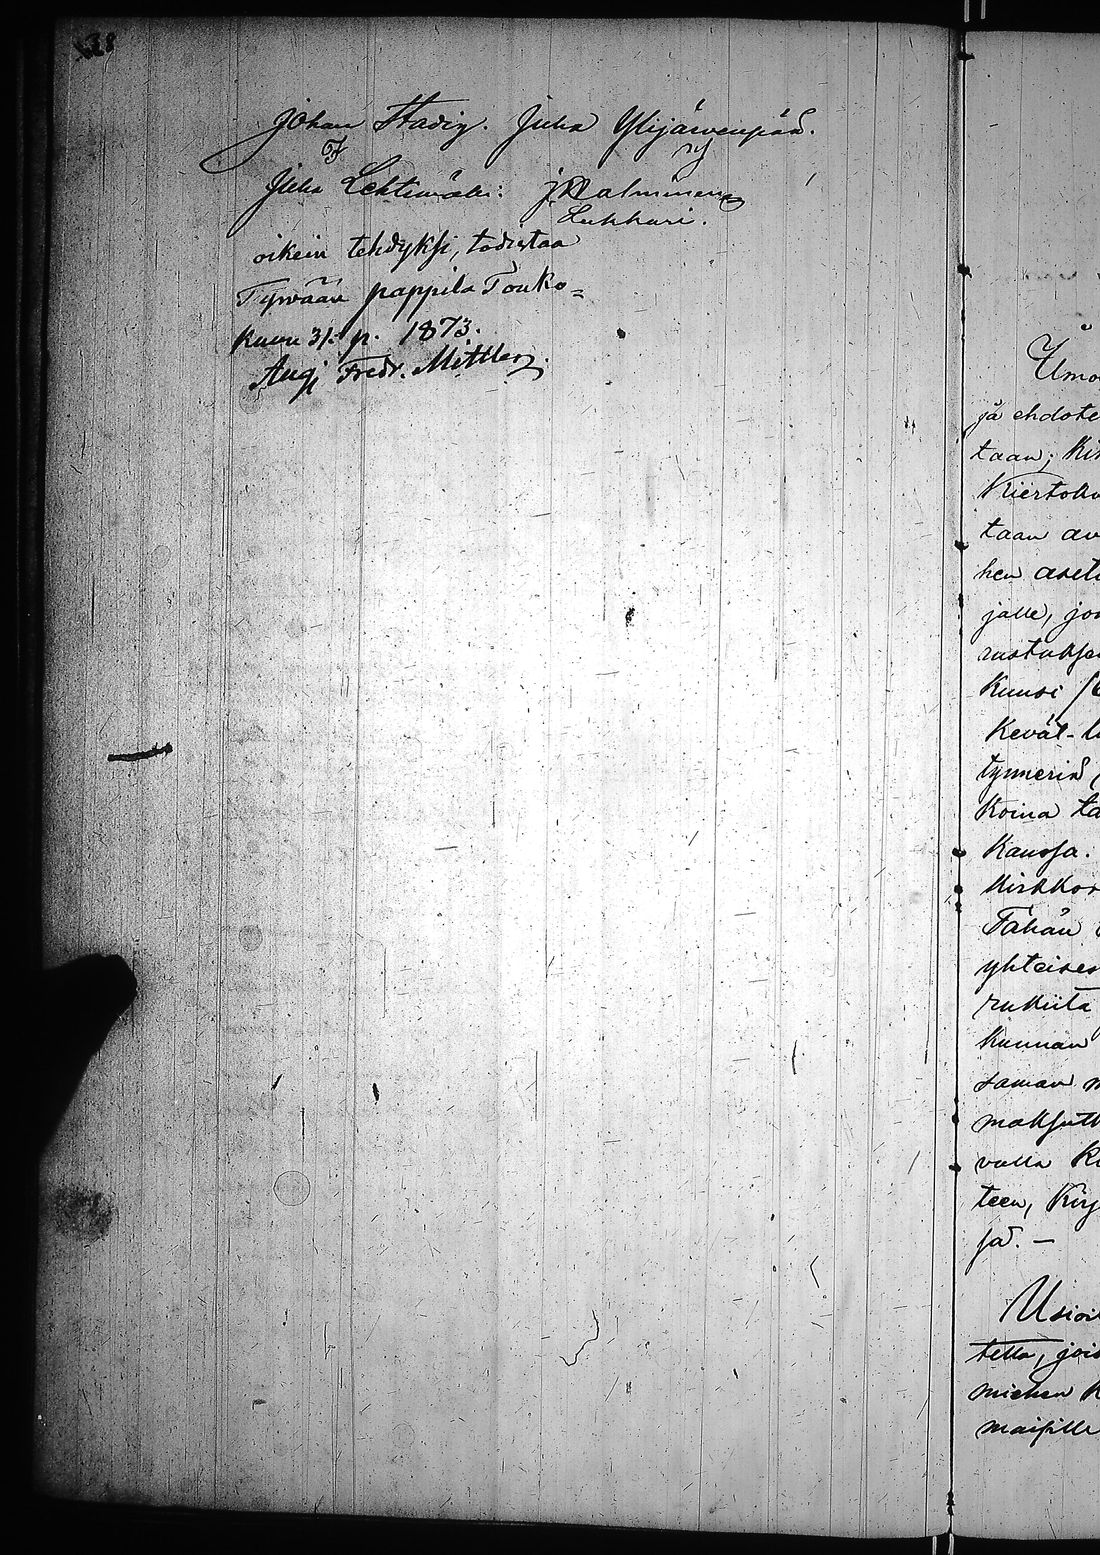 Johan Stadig. Juha Ylijärvenpää.
Juha Lehtimäki: J. Salminen
Lukkari.
oikein tehdyksi, todistaa
Tyrvään pappila Touko=
kuun 31. p. 1873.
Aug. Fredr. Mittler.
jä ehdote
taan; Kir
Kiertoku
taan av
hen aset
jalle, jo
rustuksen
Kuusi
Kevät-
tynneriä
Koina ta
Kanssa.
Kirkkor
Tähän
yhteises
rukiita
Kunnan
saman m
maksutt
valla K
teen, Kirj
sä. —
tetta, jois
miehen K
maisille